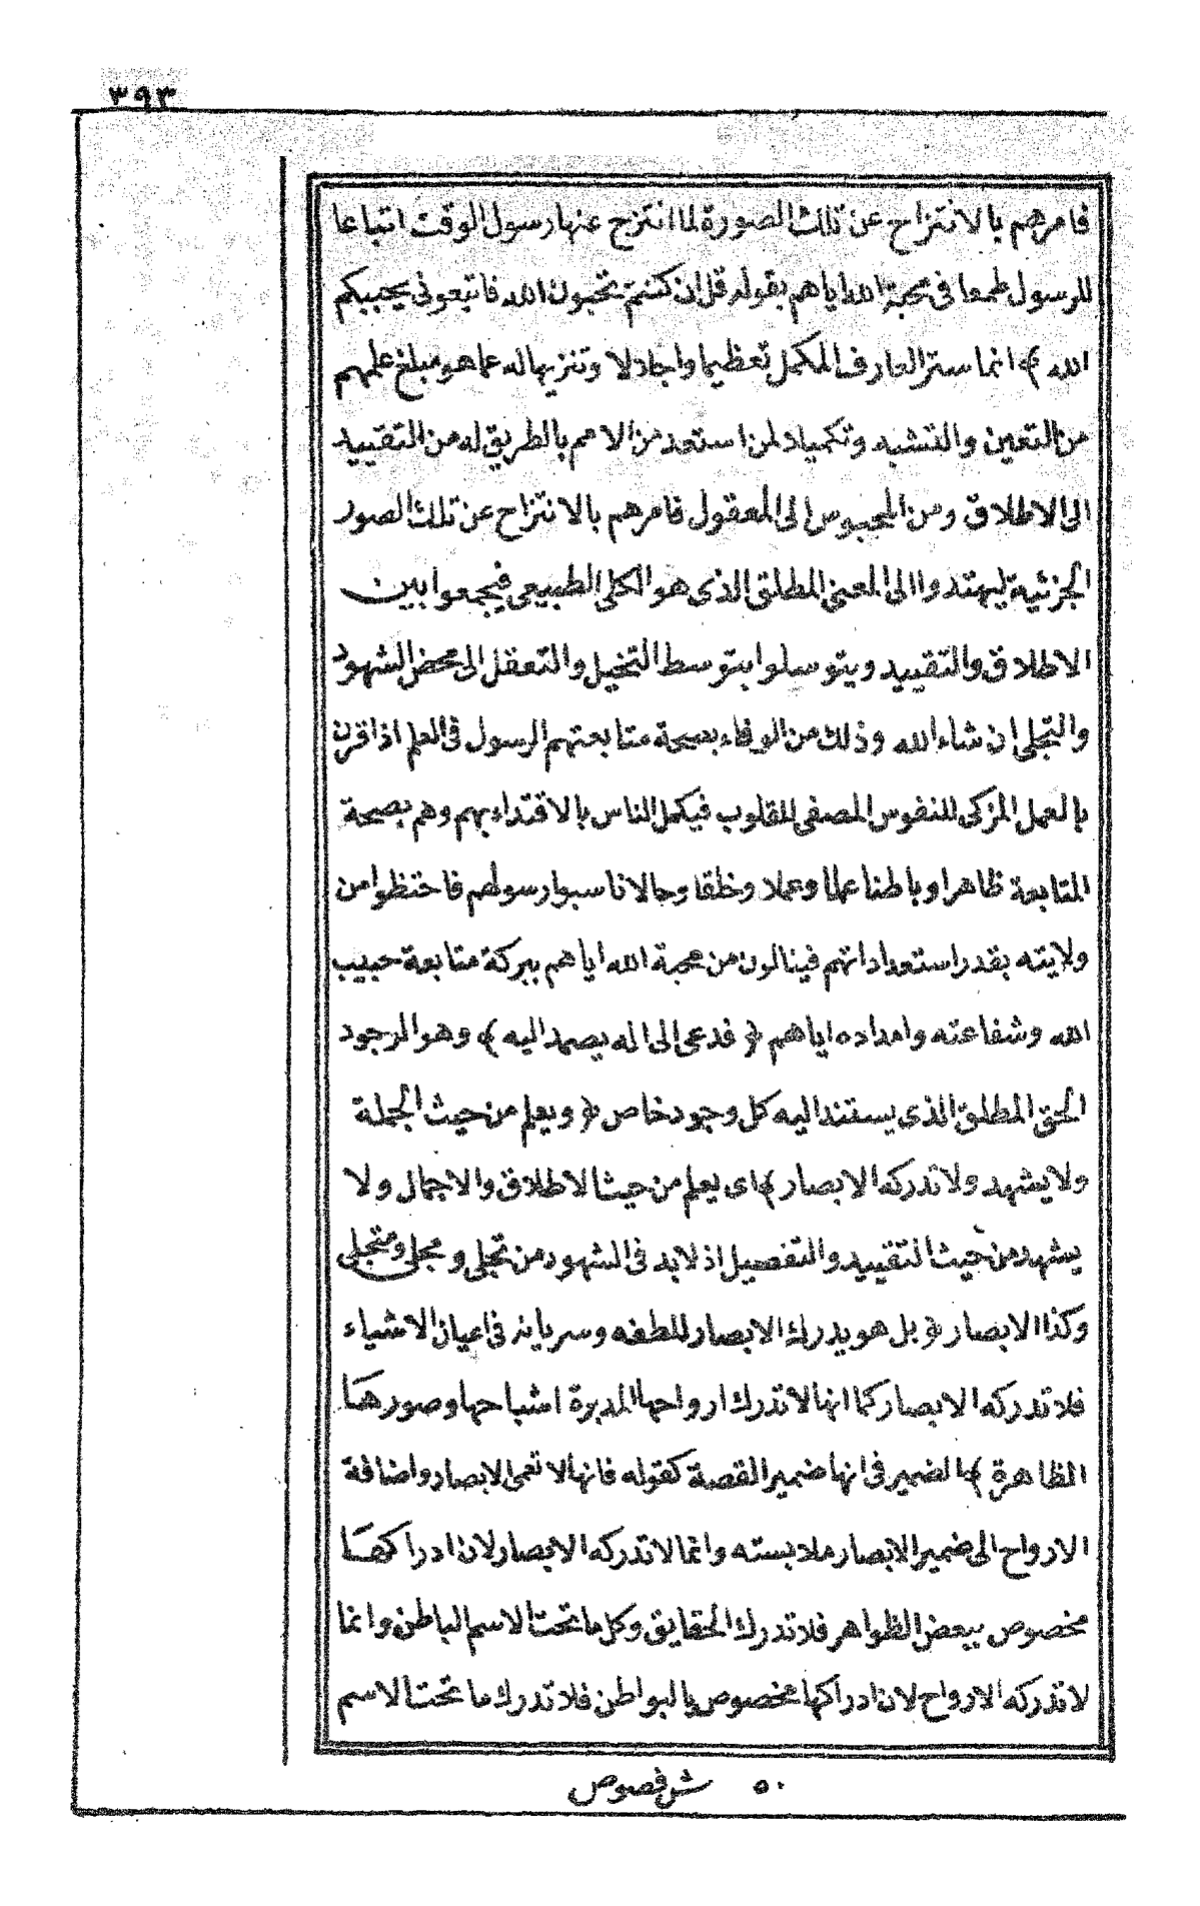 ٣٩٣
فامرهم بالانتزاح عن تلك الصورة لما انتزح عنها رسول الوقت اتباعا
للرسول طمعا فى محبة الله اياهم بقوله قل ان كنتم تحبون الله فاتبعونى يحببكم
الله ﴾ انما ستر العارف المكمل تعظيما واجلالا وتنزيها له عما هو مبلغ علمهم
من التعين والتشبه وتكميلا لمن استعد من الامم بالطريق له من التقييد
الى الاطلاق ومن المحسوس الى المعقول فامرهم بالانتزاح عن تلك الصور
الجزئية ليهتدوا الى المعنى المطلق الذى هو الكلى الطبيعى فيجمعوا بين
الاطلاق والتقييد ويتوسلوا بتوسط التخيل والتعقل الى محض الشهود
والتجلى ان شاء الله وذلك من الوفاء بصحة متابعتهم الرسول فى العلم اذا قرن
بالعمل المزكى للنفوس المصفى للقلوب فيكمل الناس بالاقتداء بهم وهم بصحة
المتابعة ظاهرا وباطنا علما وعملا وخلقا وحالا ناسبوا رسولهم فاحتظوا من
ولايته بقدر استعداداتهم فينالون من محبة الله اياهم ببركة متابعة حبيب
الله وشفاعته وامداده اياهم ﴿ فدعى الى اله يصمد اليه ﴾ وهو الوجود
الحق المطلق الذى يستند اليه كل وجود خاص ﴿ ويعلم من حيث الجملة
ولا يشهد ولا تدركه الابصار ﴾ اى يعلم من حيث الاطلاق والاجمال ولا
يشهد من حيث التقييد والتفصيل اذ لابد فى الشهود من تجلى و مجلى ومتجلى
وكذا الابصار ﴿ بل هو يدرك الابصار للطفه وسريانه فى اعيان الاشياء
فلا تدركه الابصار كما انها لا تدرك ارواحها المدبرة اشباحها وصورها
الظاهرة ﴾ الضمير فى انها ضمير القصة كقوله فانها لا تعمى الابصار واضافة
الارواح الى ضمير الابصار ملابسته وانما لا تدركه الابصار لان ادراكها
مخصوص ببعض الظواهر فلا تدرك الحقايق وكل ما تحت الاسم الباطن وانما
لا تدركه الارواح لان ادراكها مخصوص بالبواطن فلا تدرك ما تحت الاسم
٥٠ ش فصوص